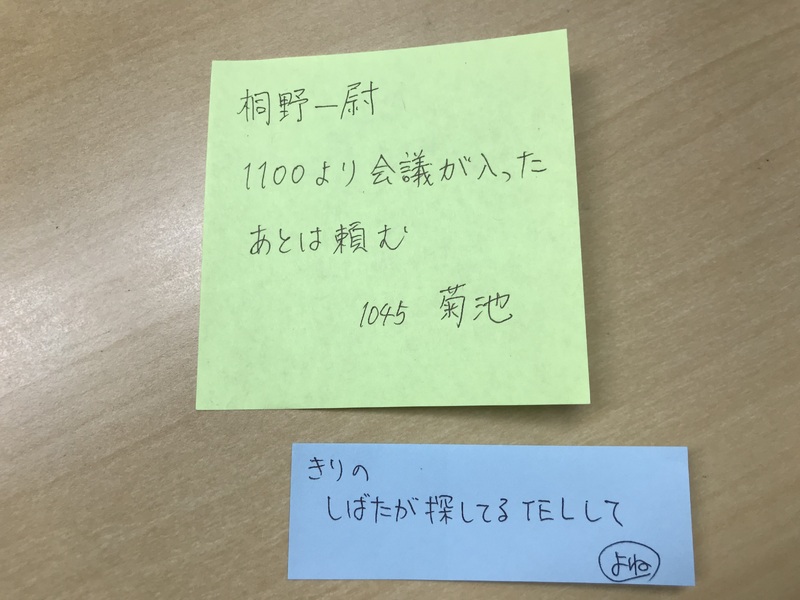 桐野一尉
1100より会議が入った
あとは頼む
1045 菊池
きりの
しばたが探してるTELして
よね